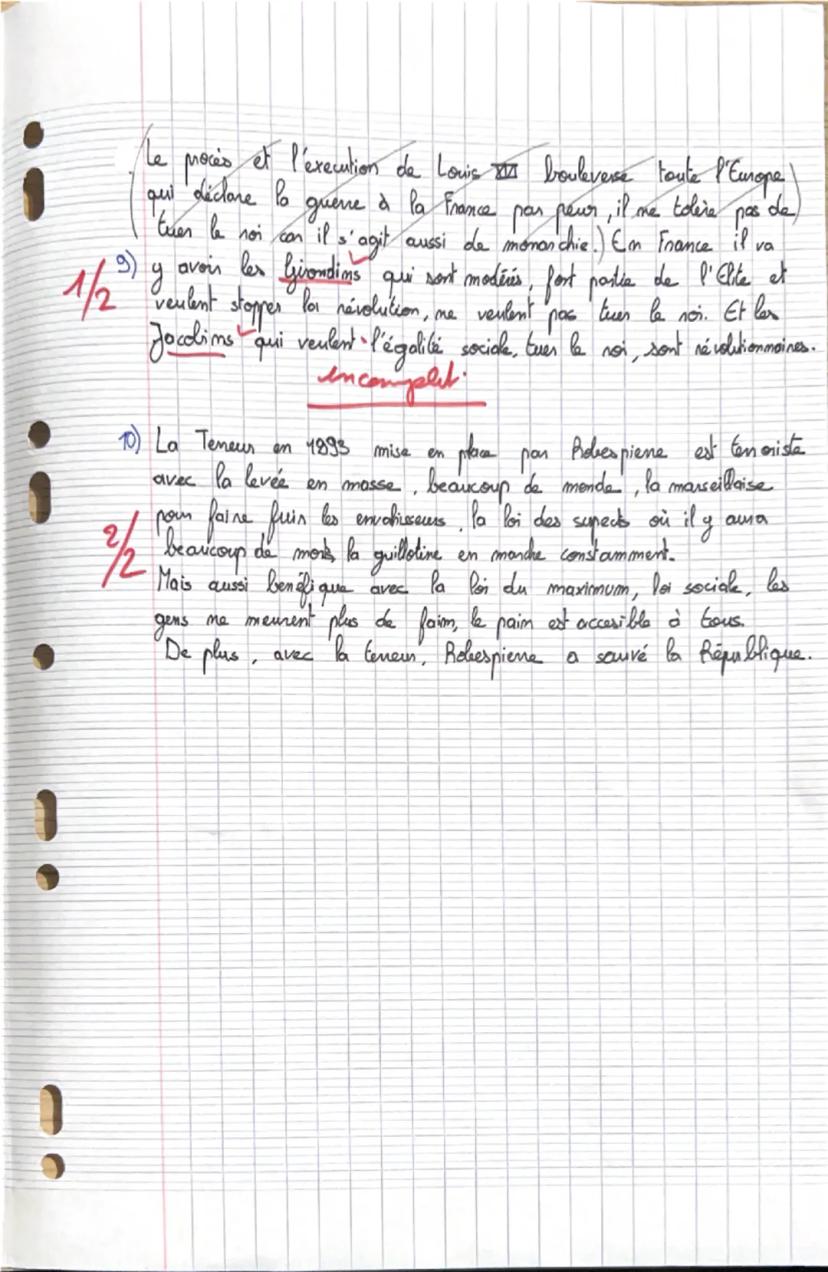 (Le procès et l'execution de Louis XVI bouleverse toute l'Europe
qui déclare la guerre à la France par peur, il ne tolère pas de
tuer le roi car il s'agit aussi de monarchie.) En France il va
9) y avoir les Girondins qui sont modérés, font partie de l'Elite et
1/2
veulent stopper la révolution, ne veulent pas tuer le roi. Et les
Jacobins qui veulent l'égalité sociale, tuer le roi, sont révolutionnaires.
incomplet.
10) La Terreur en 1893 mise en place par Robespierre est terroriste
avec la levée en masse, beaucoup de monde, la marseillaise
pour faire fuir les envahisseurs, la loi des supects où il y aura
2/2
beaucoup de morts, la guillotine en marche constamment.
Mais aussi benéfique avec la loi du maximum, loi sociale, les
gens ne meurent plus de faim, le pain est accesible à tous.
De plus, avec la terreur, Robespierre a sauvé la République.